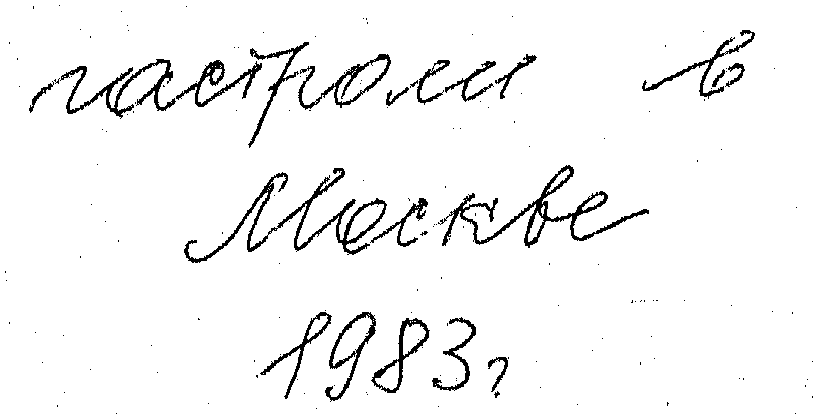 гастроли в
Москве
1983г